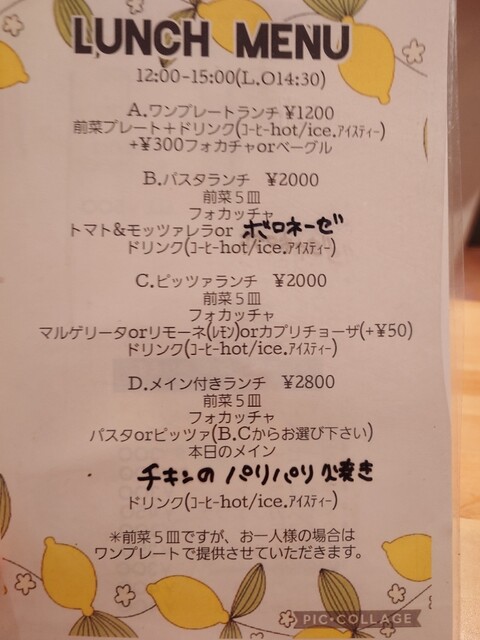 LUNCH MENU
12:00-15:00(L.O14:30)
A.ワンプレートランチ ¥1200
前菜プレート＋ドリンク(ｺｰﾋｰhot/ice.ｱｲｽﾃｨｰ)
+¥300フォカチャorベーグル
B.パスタランチ ¥2000
前菜５皿
フォカッチャ
トマト&モッツァレラor ボロネーゼ
ドリンク(ｺｰﾋｰhot/ice.ｱｲｽﾃｨｰ)
C.ピッツァランチ ¥2000
前菜５皿
フォカッチャ
マルゲリータorリモーネ(ﾚﾓﾝ)orカプリチョーザ(+¥50)
ドリンク(ｺｰﾋｰhot/ice.ｱｲｽﾃｨｰ)
D.メイン付きランチ ¥2800
前菜５皿
フォカッチャ
パスタorピッツァ(B.Cからお選び下さい)
本日のメイン
チキンの パリパリ 焼き
ドリンク(ｺｰﾋｰhot/ice.ｱｲｽﾃｨｰ)
＊前菜５皿ですが、お一人様の場合は
ワンプレートで提供させていただきます。
PIC•COLLAGE